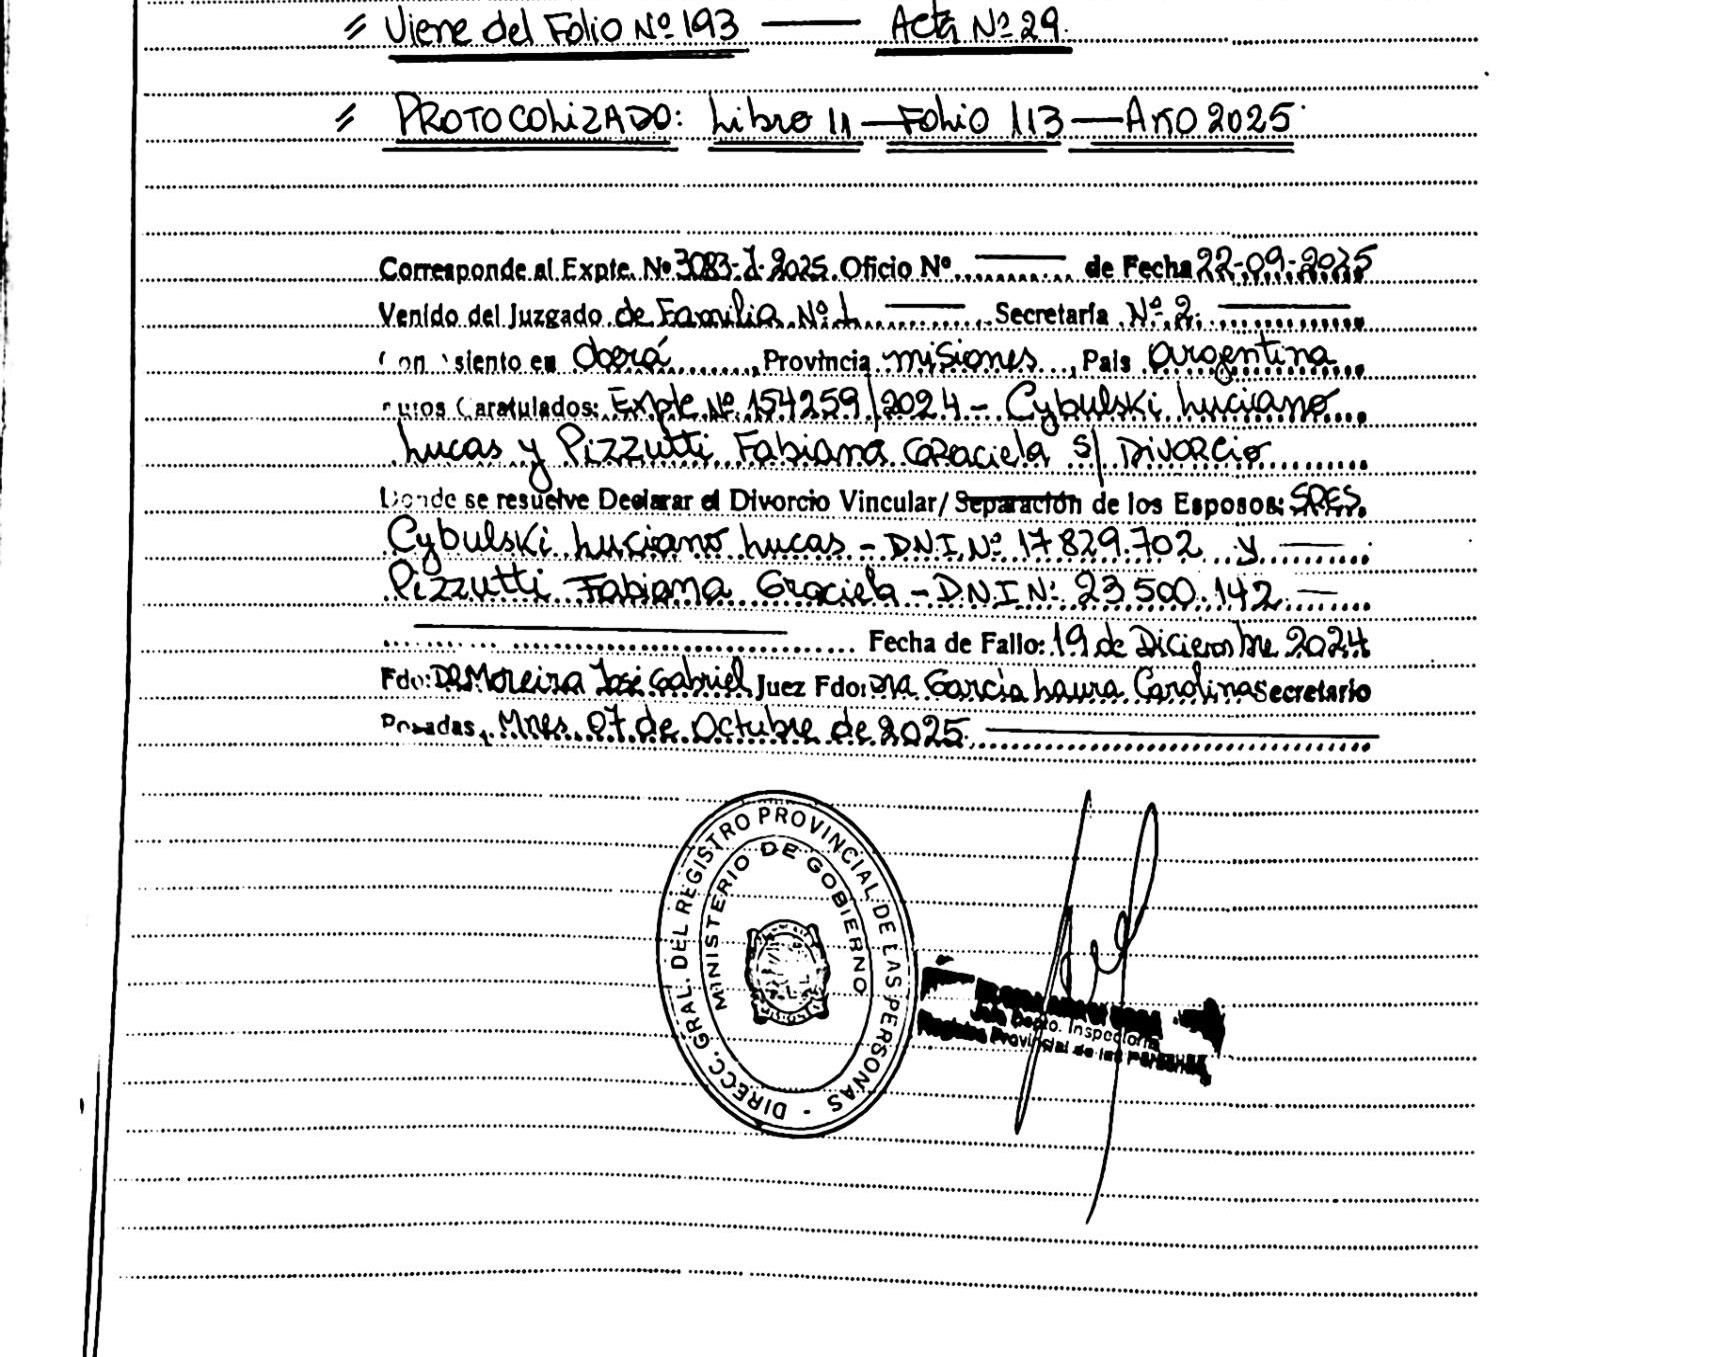 Viene del Folio Nº 193 — Acta Nº 29.
PROTOCOLIZADO: Libro 11 — Folio 113 — AÑO 2025
Corresponde al Expte. Nº 3083-J-2025. Oficio Nº — de Fecha 22-09-2025
Venido del Juzgado de Familia Nº 1 — Secretaría Nº 2.
con asiento en Oberá, Provincia misiones, Pais argentina
autos Caratulados: Expte Nº 154259/2024 - Cybulski Luciano
Lucas y Pizzutti Fabiana Graciela s/ Divorcio
Donde se resuelve Declarar el Divorcio Vincular/ Separación de los Esposos: SRES.
Cybulski Luciano Lucas - D.N.I. Nº 17829.702 y —
Pizzutti Fabiana Graciela - D.N.I Nº 23500.142 —
Fecha de Fallo: 19 de Diciembre 2024
Fdo: DR Moreira José Gabriel Juez Fdo: DRA García Laura Carolina Secretario
Posadas, Mnes. 07 de Octubre de 2025.
DIRECC. GRAL. DEL REGISTRO PROVINCIAL DE LAS PERSONAS -
MINISTERIO DE GOBIERNO
Jefe Dpto. Inspectoría
Registro Provincial de las Personas